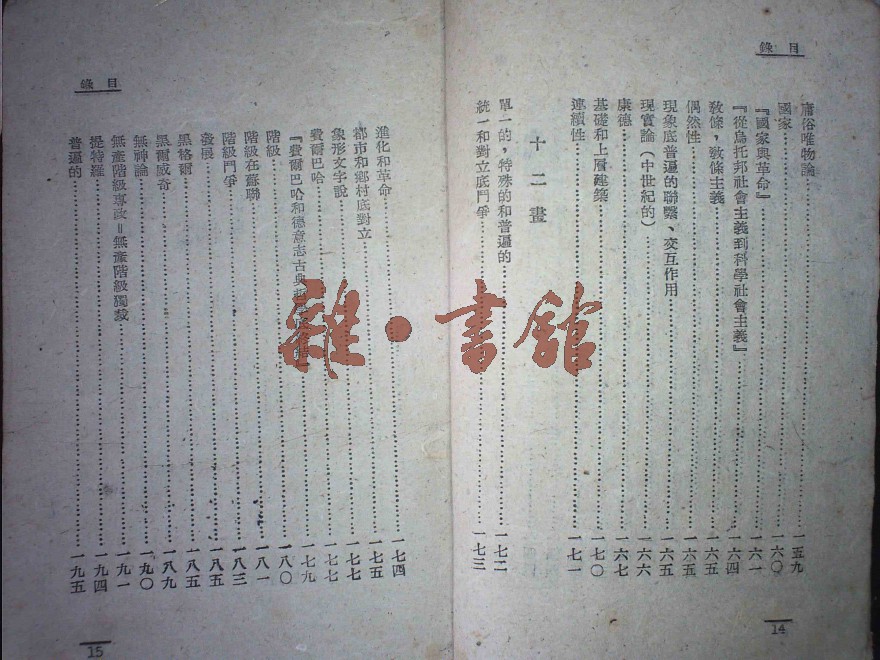 目錄
庸俗唯物論……一五九
國家……一六〇
『國家與革命』……一六一
『從烏托邦社會主義到科學社會主義』……一六四
敎條，敎條主義……一六五
偶然性……一六五
現象底普遍的聯繫、交互作用……一六五
現實論（中世紀的）……一六六
康德……一六七
基礎和上層建築……一七〇
連續性……一七一
十二畫
單一的，特殊的和普遍的……一七二
統一和對立底鬥爭……一七三
14
目錄
進化和革命……一七四
都市和鄉村底對立……一七五
象形文字說……一七七
費爾巴哈……一七七
『費爾巴哈和德意志古典哲學』……一七九
階級……一八〇
階級在蘇聯……一八一
階級鬥爭……一八三
發展……一八五
黑格爾……一八五
黑爾威奇……一八九
無神論……一九〇
無產階級專政＝無產階級獨裁……一九一
提特羅……一九四
普遍的……一九五
15
雜·書舘